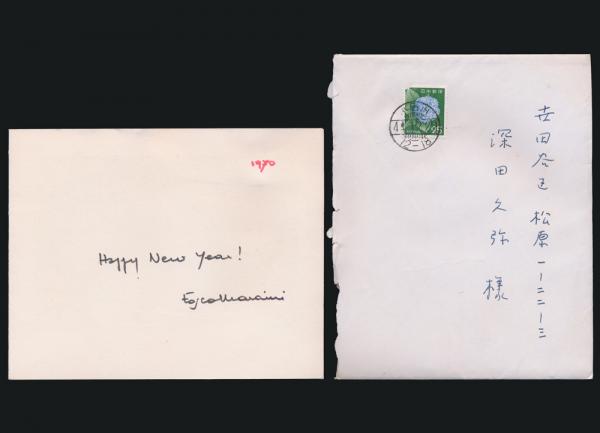 1970
Happy New Year!
Fosco Maraini
日本郵便
25
世田谷区 松原 一ー二二ー三
深田久弥 様